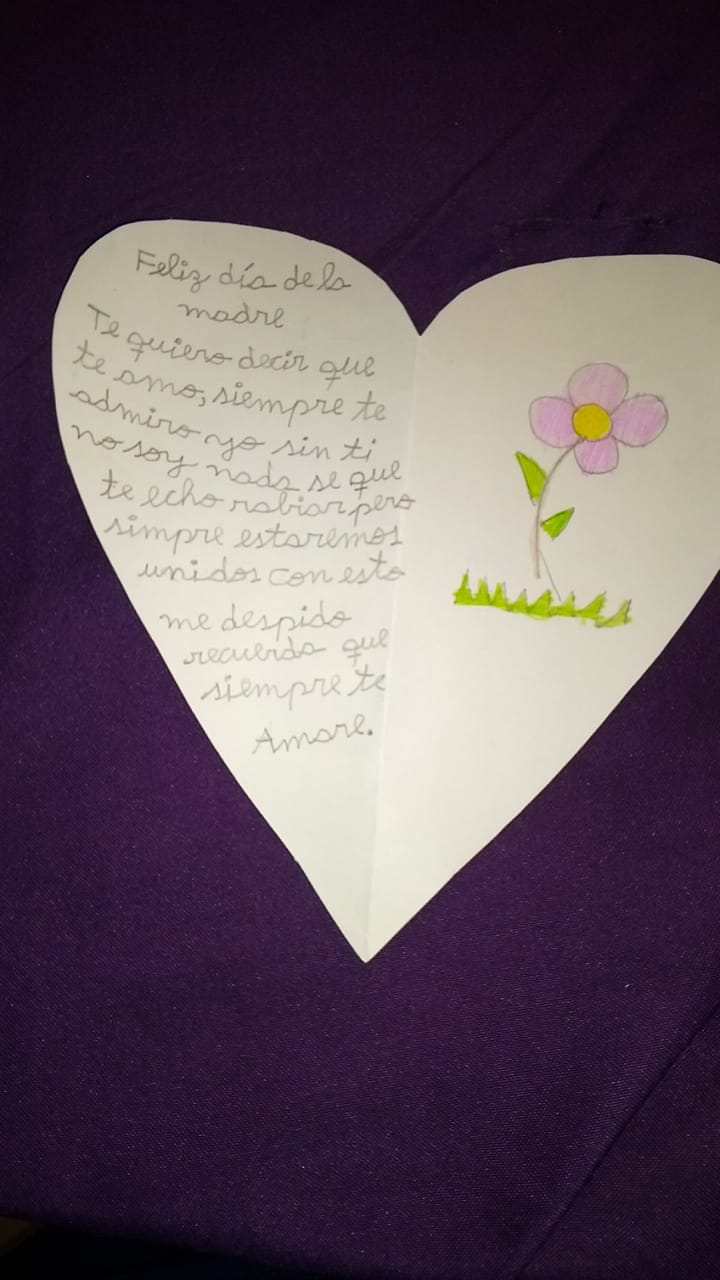 Feliz día de la
madre
Te quiero decir que
te amo, siempre te
admiro yo sin ti
no soy nada se que
te echo rabiar pero
simpre estaremos
unidos con esto
me despido
recuerda que
siempre te
Amare.